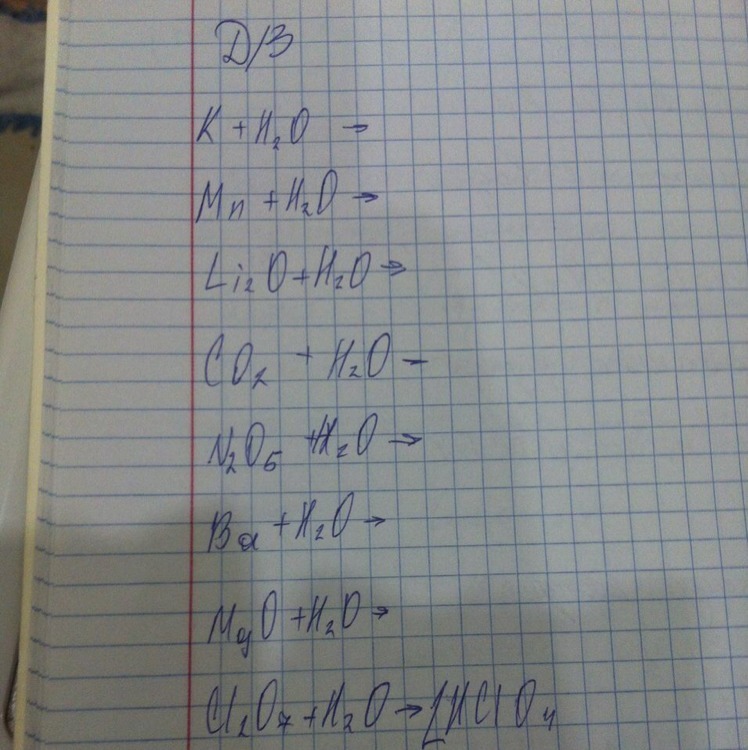 Д/З
K + H₂O →
Mn + H₂O →
Li₂O + H₂O →
CO₂ + H₂O –
N₂O₅ + H₂O →
Ba + H₂O →
MgO + H₂O →
Cl₂O₇ + H₂O → 2HClO₄